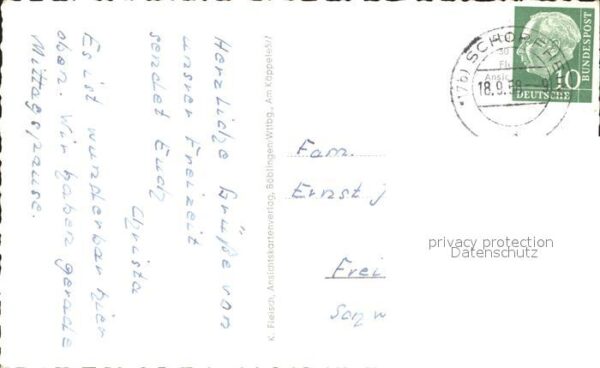 Herzliche Grüße von
unsrer Freizeit
sendet Euch
Christa
Es ist wunderbar hier
oben. Wir haben gerade
Mittagspause.
K. Fleisch, Ansichtskartenverlag, Böblingen/Wttbg., Am Käppele 5/7
(17b) SCHOPFHEIM
18.9.58
10
DEUTSCHE
BUNDESPOST
Fam.
Ernst J
Frei
privacy protection
Datenschutz